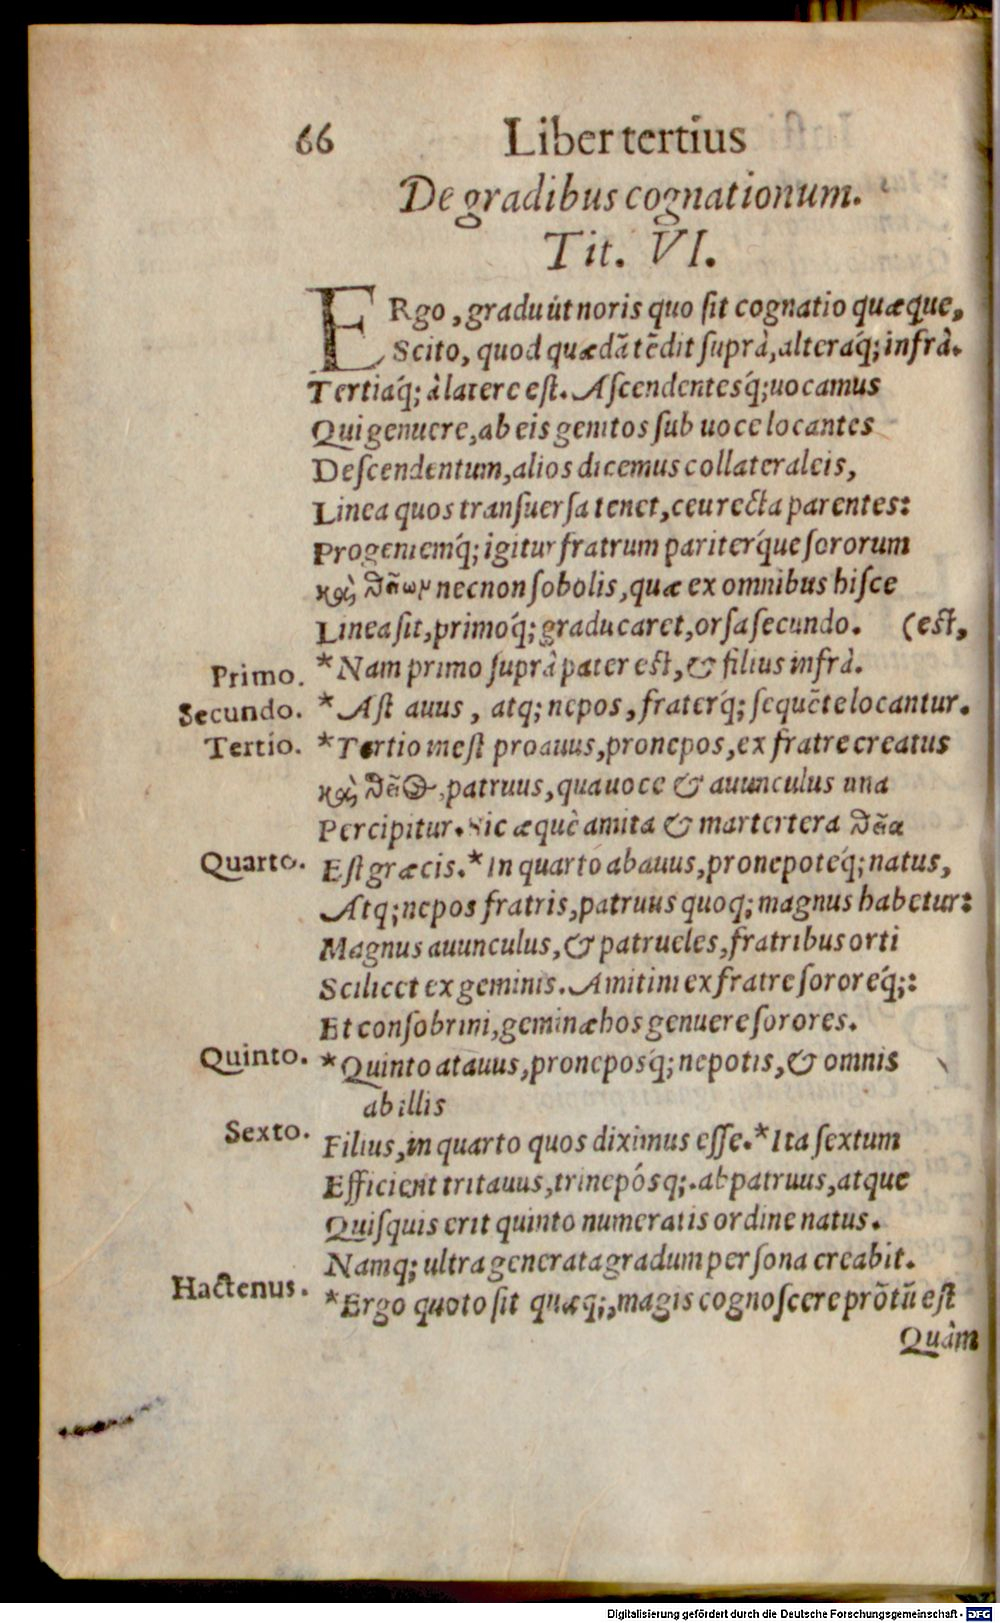 66
Liber tertius
De gradibus cognationum.
Tit. VI.
ERgo, gradu út noris quo sit cognatio quæque,
Scito, quod quædã tẽdit suprà, alteraq́; infrà.
Tertiaq́; à latere est. Ascendentesq́; uocamus
Qui genuere, ab eis genitos sub uoce locantes
Descendentum, alios dicemus collateraleis,
Linea quos transuersa tenet, ceu recta parentes:
Progeniemq́; igitur fratrum pariterq́ue sororum
καὶ θείων necnon sobolis, quæ ex omnibus hisce
Linea sit, primoq́; gradu caret, orsa secundo. (est,
Primo. *Nam primo suprà pater est, & filius infrà.
Secundo. *Ast auus, atq; nepos, fraterq́; sequẽte locantur.
Tertio. *Tertio inest proauus, pronepos, ex fratre creatus
καὶ θεῖος, patruus, qua uoce & auunculus una
Percipitur. Sic æquè amita & martertera θεία
Quarto. Est græcis. *In quarto abauus, pronepoteq́; natus,
Atq; nepos fratris, patruus quoq; magnus habetur:
Magnus auunculus, & patrueles, fratribus orti
Scilicet ex geminis. Amitini ex fratre sororeq́;:
Et consobrini, geminæ hos genuere sorores.
Quinto. *Quinto atauus, proneposq́; nepotis, & omnis
ab illis
Sexto. Filius, in quarto quos diximus esse. *Ita sextum
Efficient tritauus, trinepósq;. ab patruus, atque
Quisquis erit quinto numeratis ordine natus.
Namq; ultra generata gradum persona creabit.
Hactenus. *Ergo quoto sit quæq;, magis cognoscere prõtũ est
Quàm
Digitalisierung gefördert durch die Deutsche Forschungsgemeinschaft - DFG